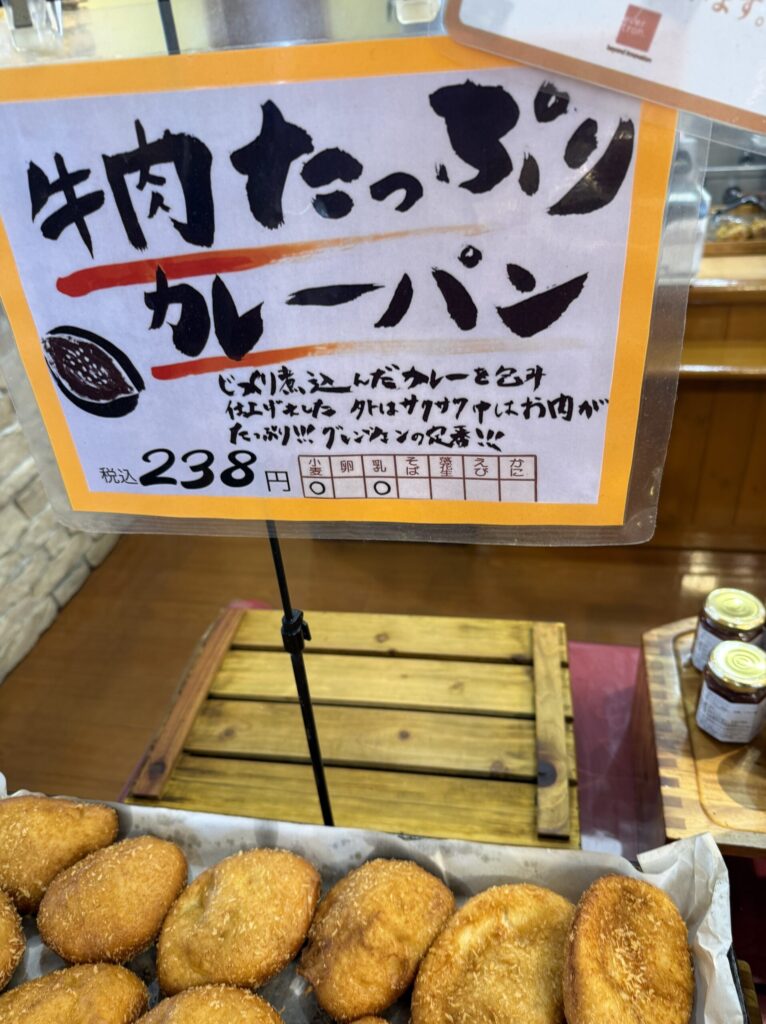 ます。
beyond innovation
牛肉たっぷり
カレーパン
じっくり煮込んだカレーを包み
仕上げました 外はサクサク中はお肉が
たっぷり!!! グレンジェンの定番!!!
税込238円
小麦 卵 乳 そば 落花生 えび かに
○ ○